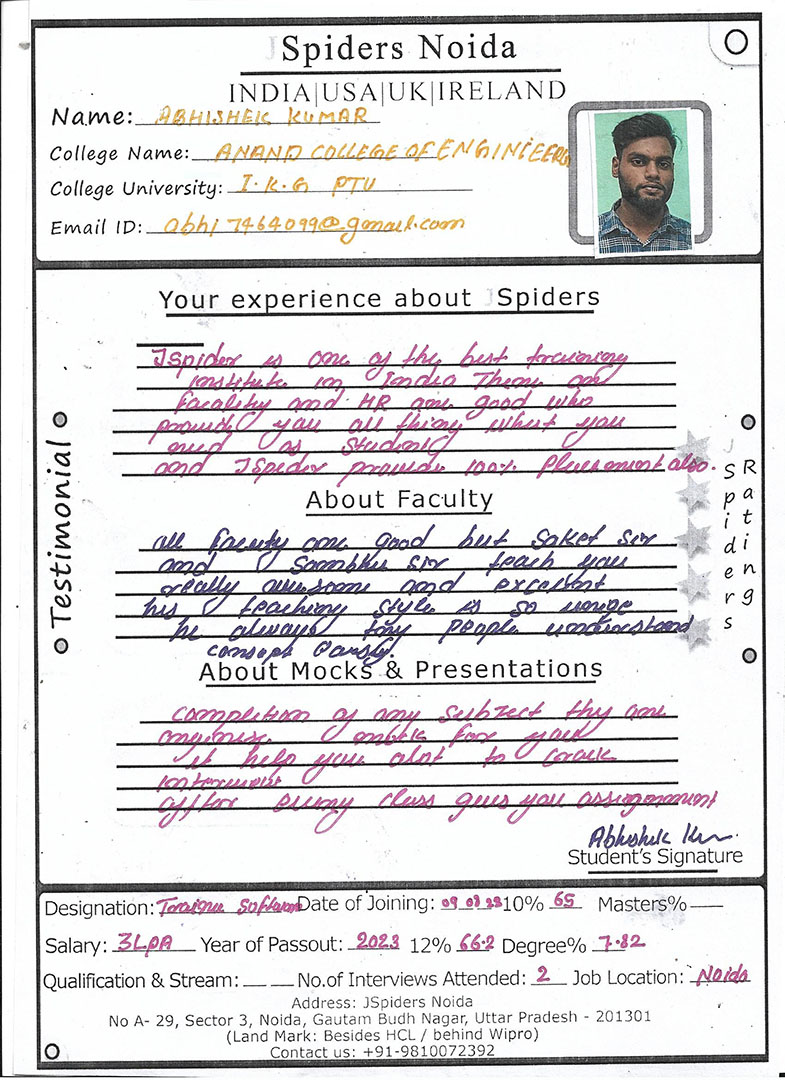 JSpiders Noida
INDIA|USA|UK|IRELAND
Name: ABHISHEK KUMAR
College Name: ANAND COLLEGE OF ENGINEERG
College University: I.K.G PTU
Email ID: abhi7464099@gmail.com
Your experience about JSpiders
JSpider is one of the best training
institute in India Them are
Facality and HR are good who
provide you all thing what you
need as Student
and JSpider provide 100% Placement also.
About Faculty
all Faculty are good but Saket sir
and Sambhu sir teach you
really awesome and excellent
his teaching style is so unige
he always try people understand
concept easly.
About Mocks & Presentations
Completion of any Subject thy are
organise mock for you
it help you alot to crack
interview
after every class gives you assignment
Testimonial
JSpiders
Rating
Abhishek Kr
Student's Signature
Designation: Trainee Software Date of Joining: 09 08 23 10% 65 Masters%
Salary: 3LPA Year of Passout: 2023 12% 66.2 Degree% 7.82
Qualification & Stream: No.of Interviews Attended: 2 Job Location: Noida
Address: JSpiders Noida
No A- 29, Sector 3, Noida, Gautam Budh Nagar, Uttar Pradesh - 201301
(Land Mark: Besides HCL / behind Wipro)
Contact us: +91-9810072392